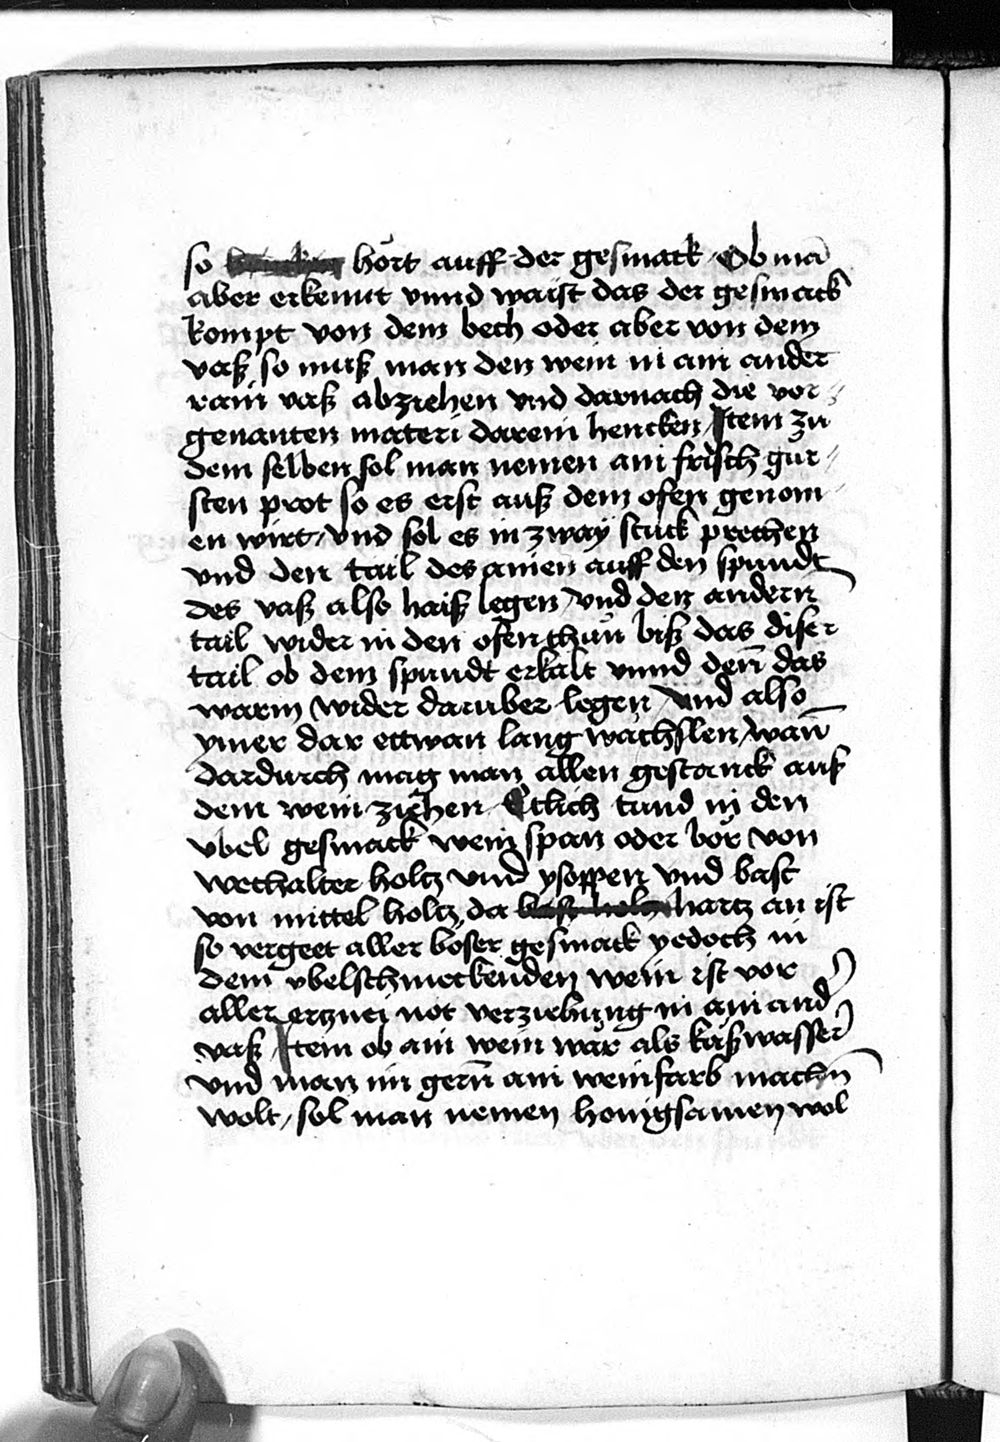 so hört auff der gesmack Ob mā
aber erkennt vnnd waist das der gesmack
kompt von dem bech oder aber von dem
vaß so muß man den wein in ain ander
rain vaß abziehen vnd darnach die vor⸗
genanten materi darein hencken Item zu
dem selben sol man nemen ain frisch gür⸗
sten prot so es erst auß dem ofen genom⸗
en wirt / vnd sol es in zwaÿ stuck prechen
vnd den tail des ainen auff den spundt
des vaß also haiß legen / vnd den andern
tail wider in den ofen thun biß das diser
tail ob dem spundt erkalt vnnd den̄ das
warm wider daruber legen / vnd also
ymer dar ettwan lang wachslen / wan̄
dardurch mag man allen gestanck auß
dem wein ziehen Etlich tund in den
vbel gesmack wein span oder bör von
wechalter holtz vnd ysoppen vnd bast
von mittel holtz da hartz an ist
so vergeet aller böser gesmack yedoch in
dem vbelschmeckenden wein ist vor
aller ertznei not verziehung in ain and̕
vaß Item ob ain wein wär als käßwasser
vnd man im gern̄ ain weinfarb machn̄
wolt / sol man nemen honigsamen wol